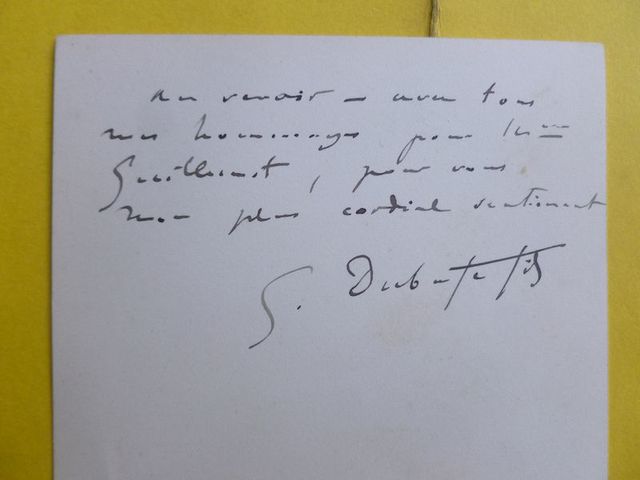 Au revoir – avec tous
mes hommages pour
Guillemet, pour vous
mon plus cordial sentiment
G. Dubufe fils